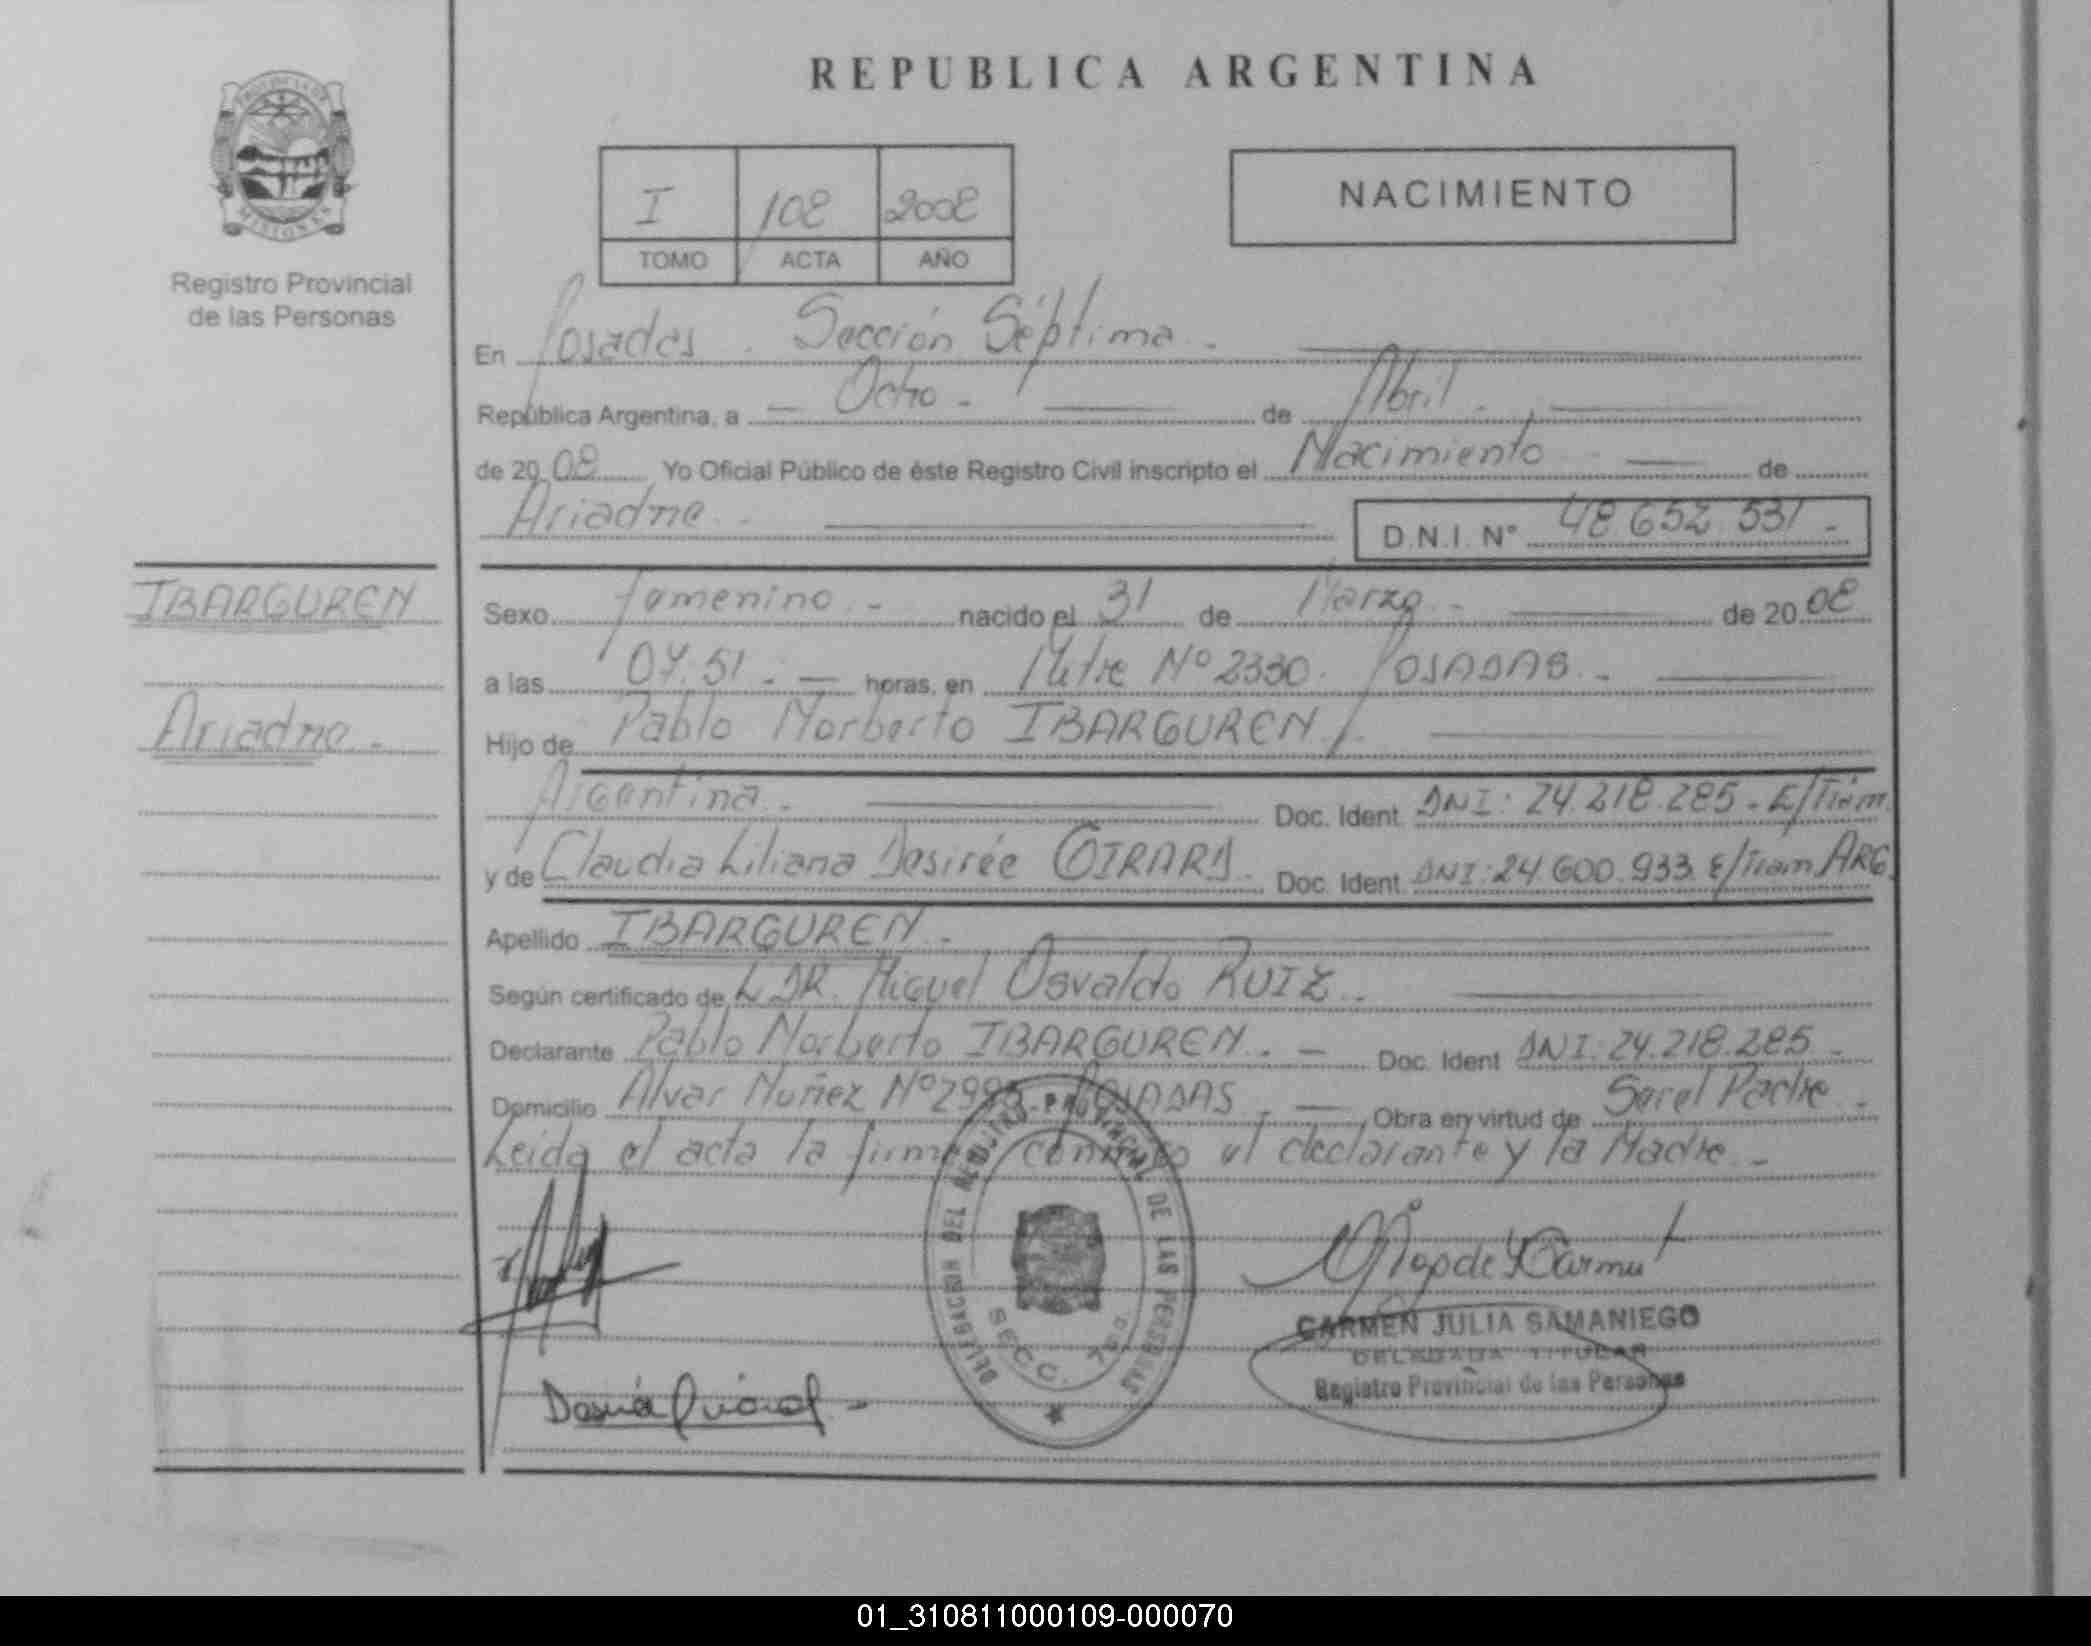 REPUBLICA ARGENTINA
PROVINCIA DE
MISIONES
Registro Provincial
de las Personas
I 108 2008
TOMO ACTA AÑO
NACIMIENTO
En Posadas. Sección Séptima.
República Argentina, a Ocho. de Abril.
de 2008 Yo Oficial Público de éste Registro Civil inscripto el Nacimiento de
Ariadne. D.N.I. Nº 48.652.531.-
IBARGUREN
Ariadne.-
Sexo Femenino.- nacido el 31 de Marzo.- de 2008
a las 07.51.- horas, en Mitre Nº 2330. POSADAS.-
Hijo de Pablo Norberto IBARGUREN.
Argentina.- Doc. Ident. DNI: 24.218.285.- E/Trám.
y de Claudia Liliana Desirée GIRARD. Doc. Ident. DNI: 24.600.933. E/Trám. ARG.
Apellido IBARGUREN.-
Según certificado de DR. Miguel Osvaldo RUIZ.
Declarante Pablo Norberto IBARGUREN.- Doc. Ident DNI: 24.218.285.-
Domicilio Alvar Nuñez Nº POSADAS.- Obra en virtud de Ser el Padre.-
Leida el acta la firman conmigo el declarante y la Madre.-
DELEGACION DEL REGISTRO PROVINCIAL DE LAS PERSONAS
SECC. 7
CARMEN JULIA SAMANIEGO
DELEGADA TITULAR
Registro Provincial de las Personas
01_310811000109-000070